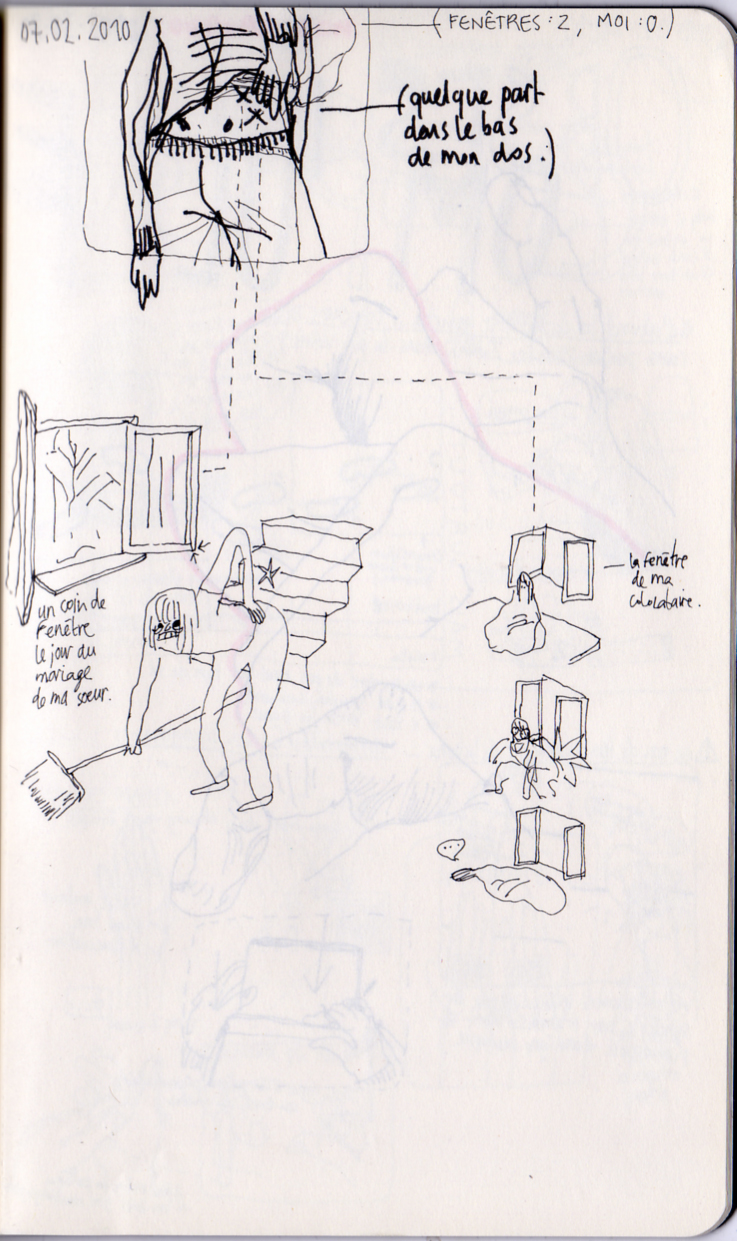 07.02.2010
(FENÊTRES : 2, MOI : 0.)
(quelque part
dans le bas
de mon dos.)
un coin de
fenêtre
le jour du
mariage
de ma soeur.
la fenêtre
de ma
colocataire.
...